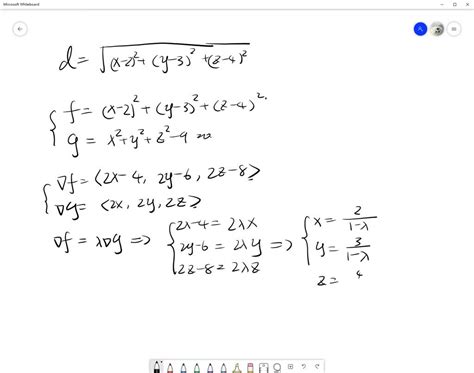 Microsoft Whiteboard
d = √(x-2)² + (y-3)² + (z-4)²
f = (x-2)² + (y-3)² + (z-4)².
g = x² + y² + z² - 9 =0
∇f = <2x-4, 2y-6, 2z-8>
∇g = <2x, 2y, 2z>
∇f = λ∇g => { 2x-4 = 2λx => { x = 2/(1-λ)
2y-6 = 2λy y = 3/(1-λ)
2z-8 = 2λz z = 4